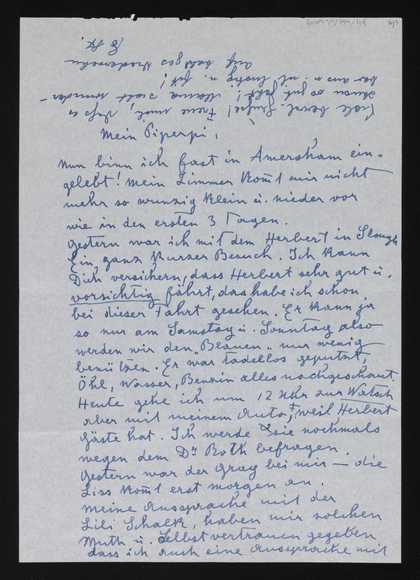 Mein Piperpi,
Nun binn ich fast in Amersham ein-
gelebt! Mein Zimmer kom̅t mir nicht
mehr so winzig klein u. nieder vor
wie in den ersten 3 Tagen.
Gestern war ich mit dem Herbert in Slough
Ein ganz kurzer Besuch. Ich kann
Dich versichern, dass Herbert sehr gut u.
vorsichtig fährt, das habe ich schon
bei dieser Fahrt gesehen. Er kann ja
so nur am Samstag u. Sonntag also
werden wir den „Blauen" nur wenig
benützen. Er war tadellos geputzt,
Öhl, Wasser, Benzin alles nachgeschaut.
Heute gehe ich um 12 Uhr zur
aber mit meinem Auto, weil Herbert
Gäste hat. Ich werde sie nochmals
wegen dem Dr Roth befragen.
Gestern war der bei mir — die
Liss kom̅t erst morgen an.
Meine Aussprache mit der
Lili Schalk, haben mir solchen
Muth u. Selbstvertrauen gegeben
dass ich auch eine Aussprache mit